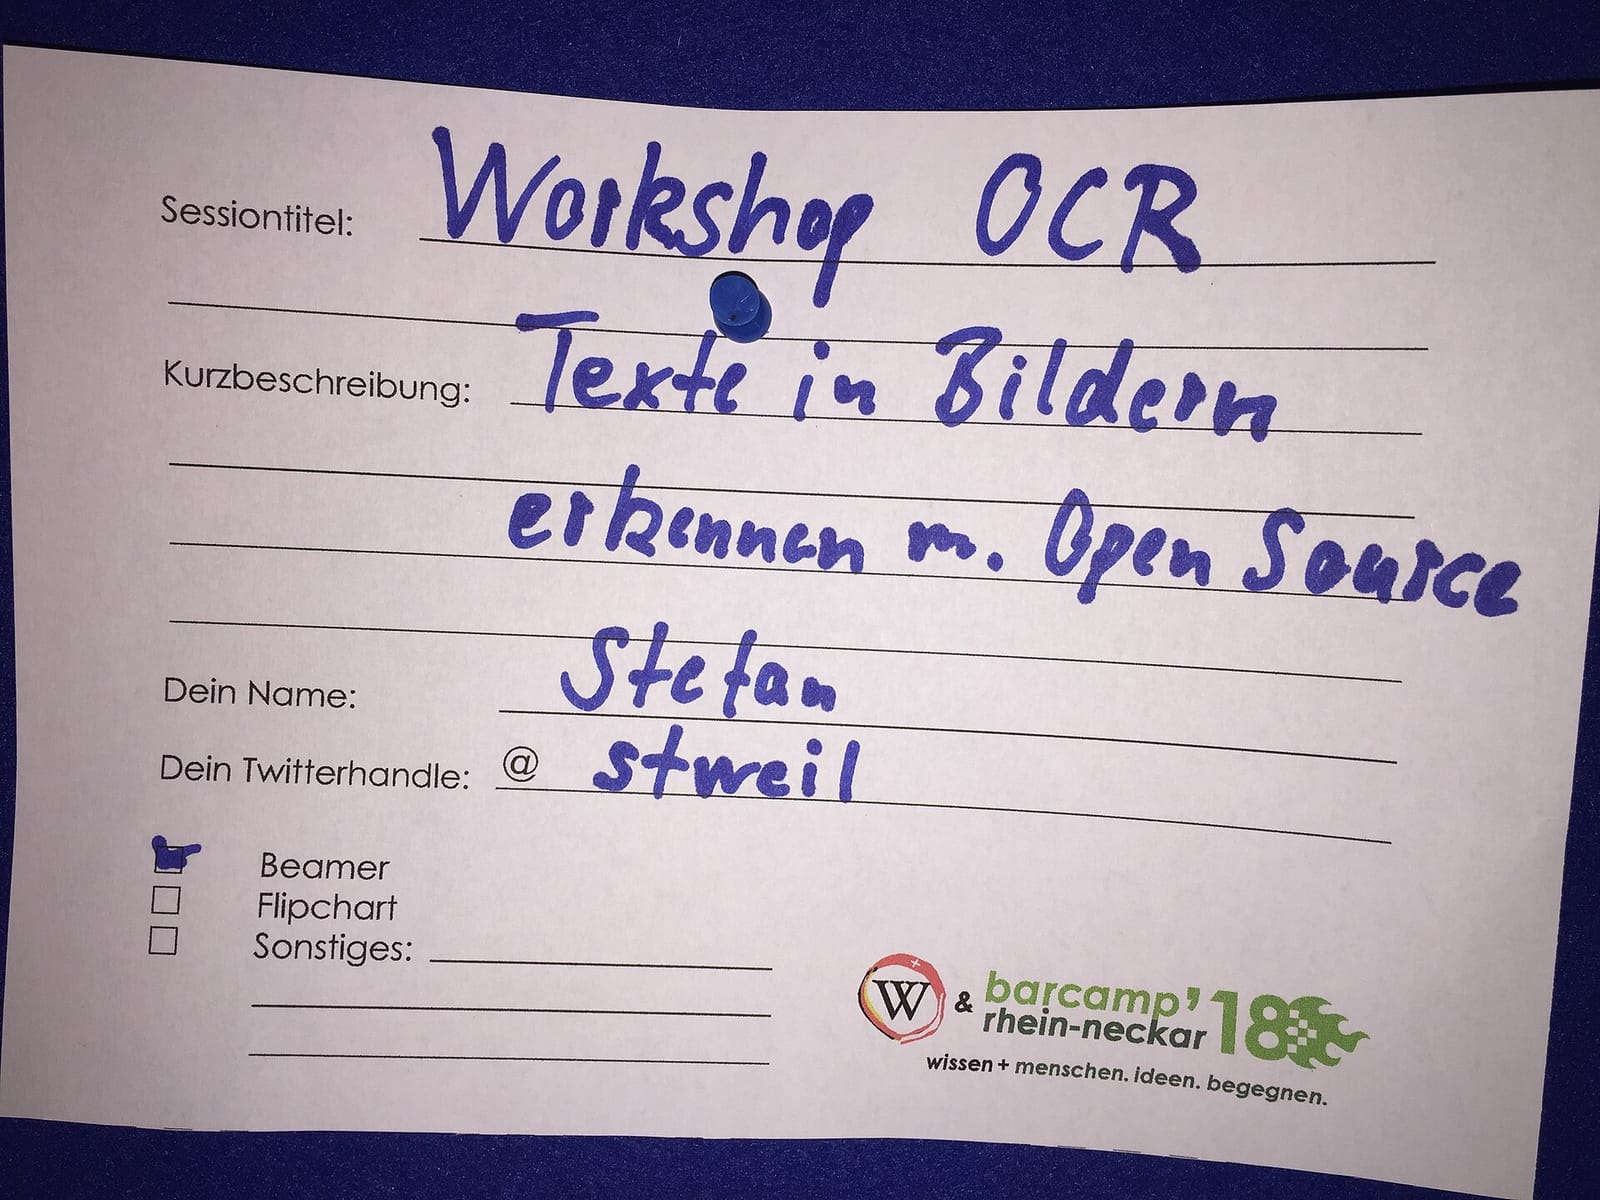 Sessiontitel: Workshop OCR
Kurzbeschreibung: Texte in Bildern
erkennen m. Open Source
Dein Name: Stefan
Dein Twitterhandle: @ stweil
Beamer
Flipchart
Sonstiges:
W & barcamp'18
rhein-neckar
wissen + menschen. ideen. begegnen.